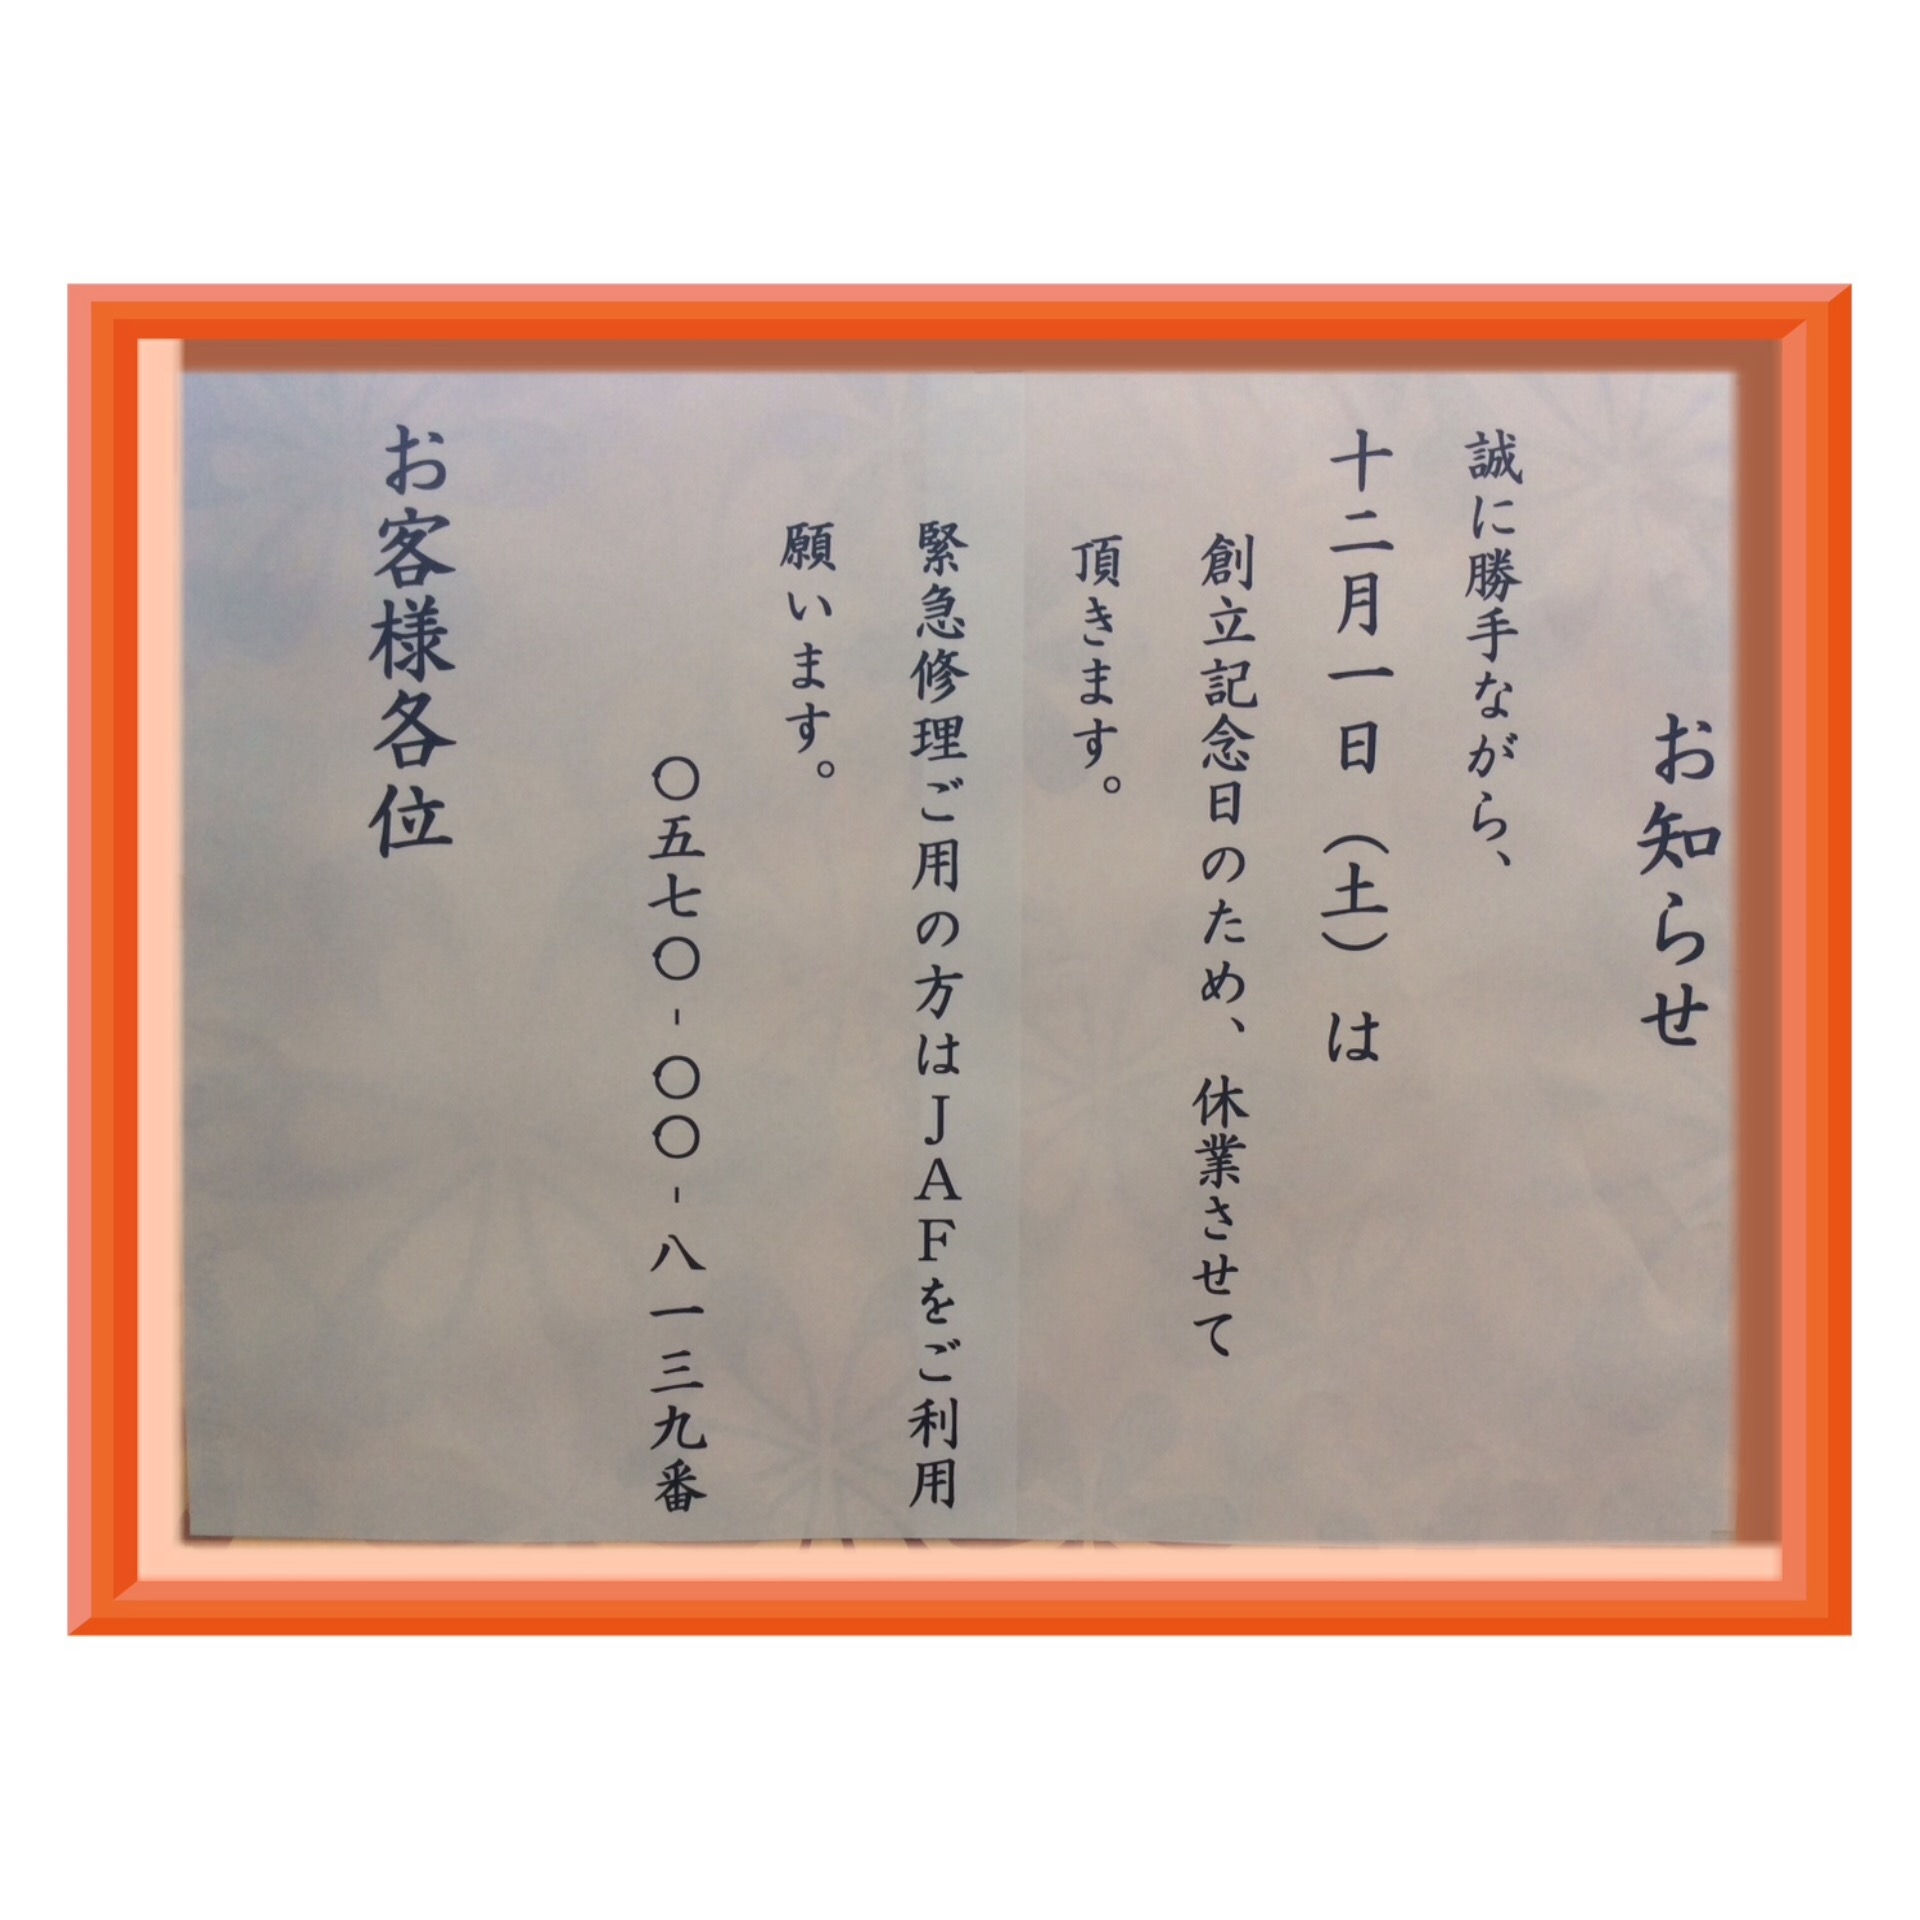 お知らせ
誠に勝手ながら、
十二月一日（土）は
創立記念日のため、休業させて
頂きます。
緊急修理ご用の方はＪＡＦをご利用
願います。
〇五七〇-〇〇-八一三九番
お客様各位